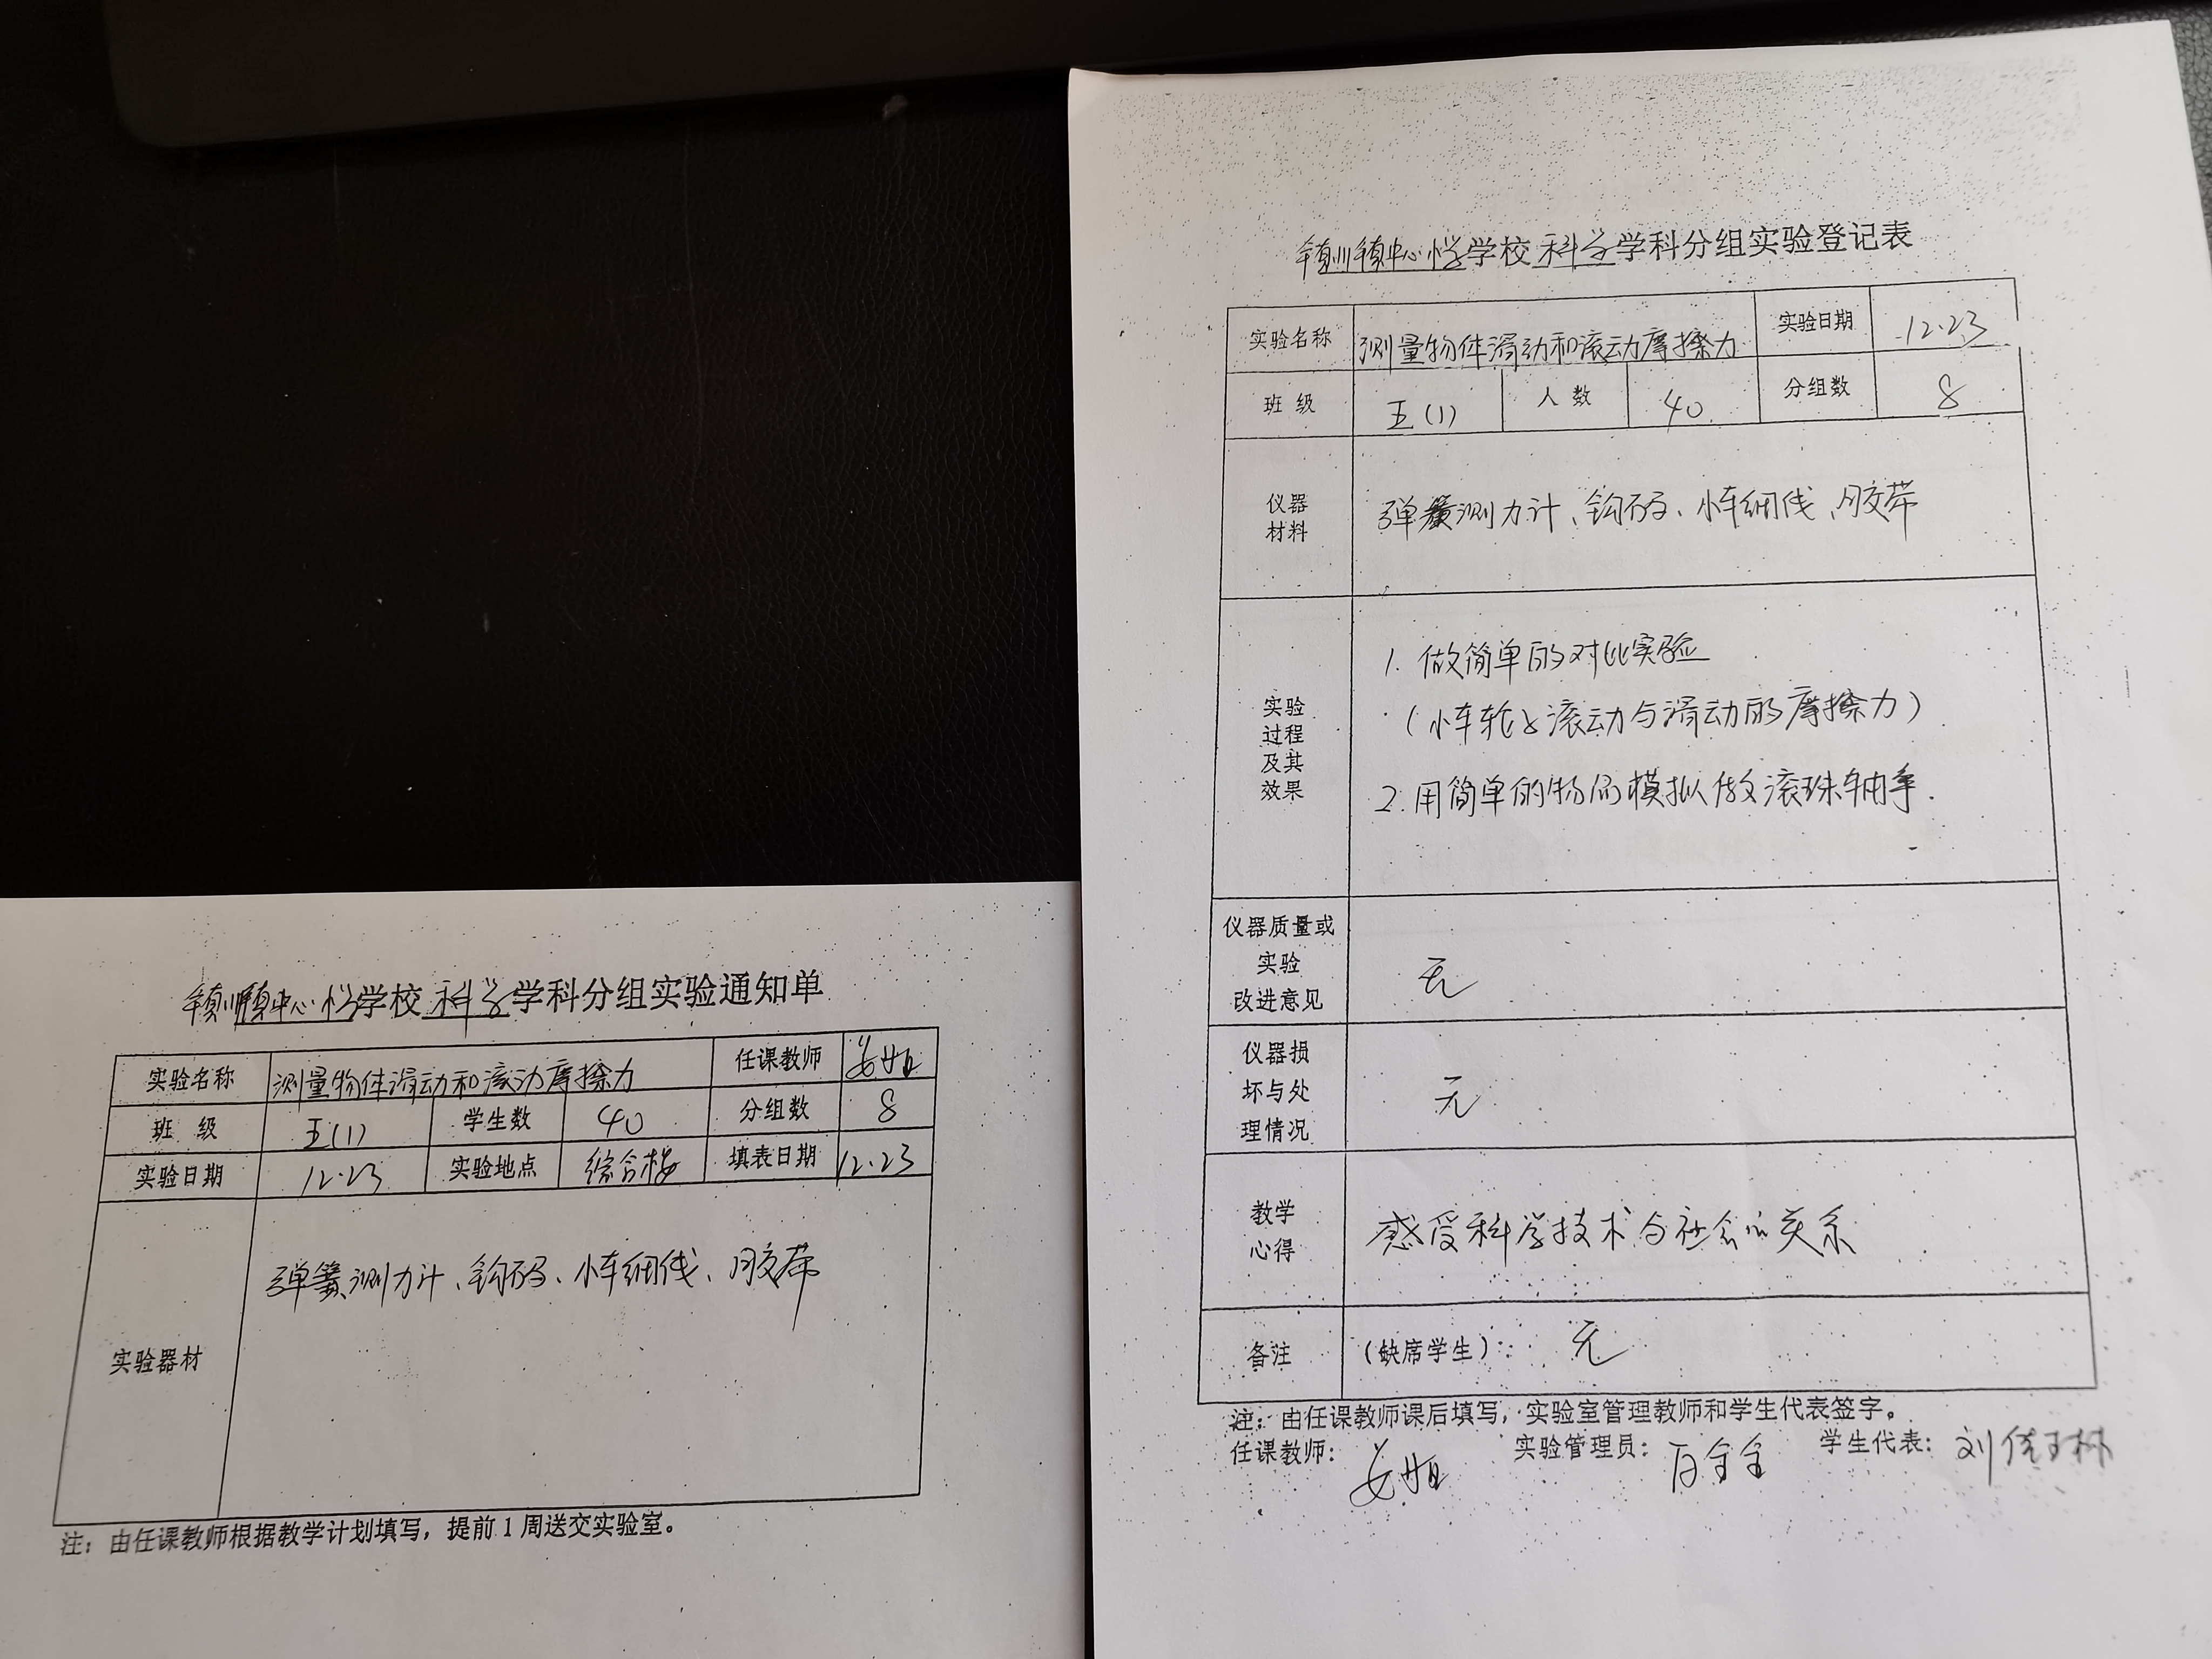 镇川镇中心小学学校科学学科分组实验通知单
实验名称 测量物体滑动和滚动摩擦力 任课教师 姜妲
班 级 五(1) 学生数 40 分组数 8
实验日期 12.23 实验地点 综合楼 填表日期 12.23
实验器材 弹簧测力计、钩码、小车细线、胶带
注：由任课教师根据教学计划填写，提前1周送交实验室。
镇川镇中心小学学校科学学科分组实验登记表
实验名称 测量物体滑动和滚动摩擦力 实验日期 12.23
班 级 五(1) 人 数 40 分组数 8
仪器
材料
弹簧测力计、钩码、小车细线、胶带
实验
过程
及其
效果
1. 做简单的对比实验
（小车轮子滚动与滑动的摩擦力）
2. 用简单的物品模拟做滚珠轴承.
仪器质量或
实验
改进意见
无
仪器损
坏与处
理情况
无
教学
心得
感受科学技术与社会的关系
备注 （缺席学生）： 无
注：由任课教师课后填写，实验室管理教师和学生代表签字。
任课教师： 实验管理员： 学生代表：刘佳